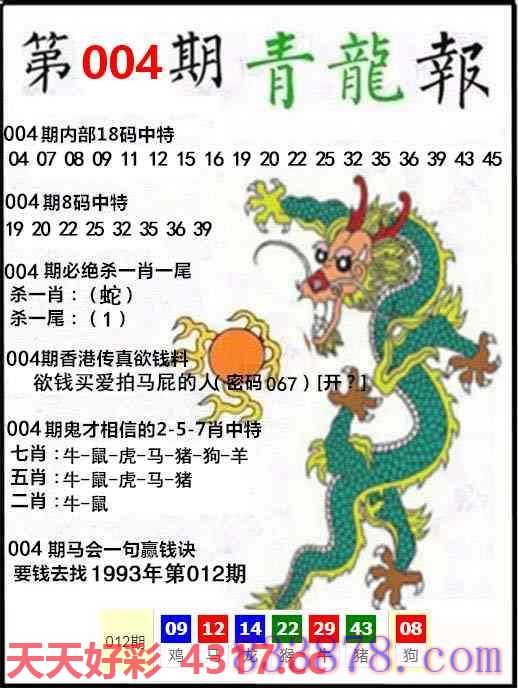 第004期 青龍報
004期内部18码中特
04 07 08 09 11 12 15 16 19 20 22 25 32 35 36 39 43 45
004期8码中特
19 20 22 25 32 35 36 39
004 期必绝杀一肖一尾
杀一肖：（蛇）
杀一尾：（1）
004期香港传真欲钱料
欲钱买爱拍马屁的人(密码067)[开？]
004期鬼才相信的2-5-7肖中特
七肖：牛-鼠-虎-马-猪-狗-羊
五肖：牛-鼠-虎-马-猪
二肖：牛-鼠
004 期马会一句赢钱诀
要钱去找 1993年第012期
012期 09 12 14 22 29 43 08
鸡 马 龙 猴 牛 猪 狗
天天好彩 4317.cc
878.com